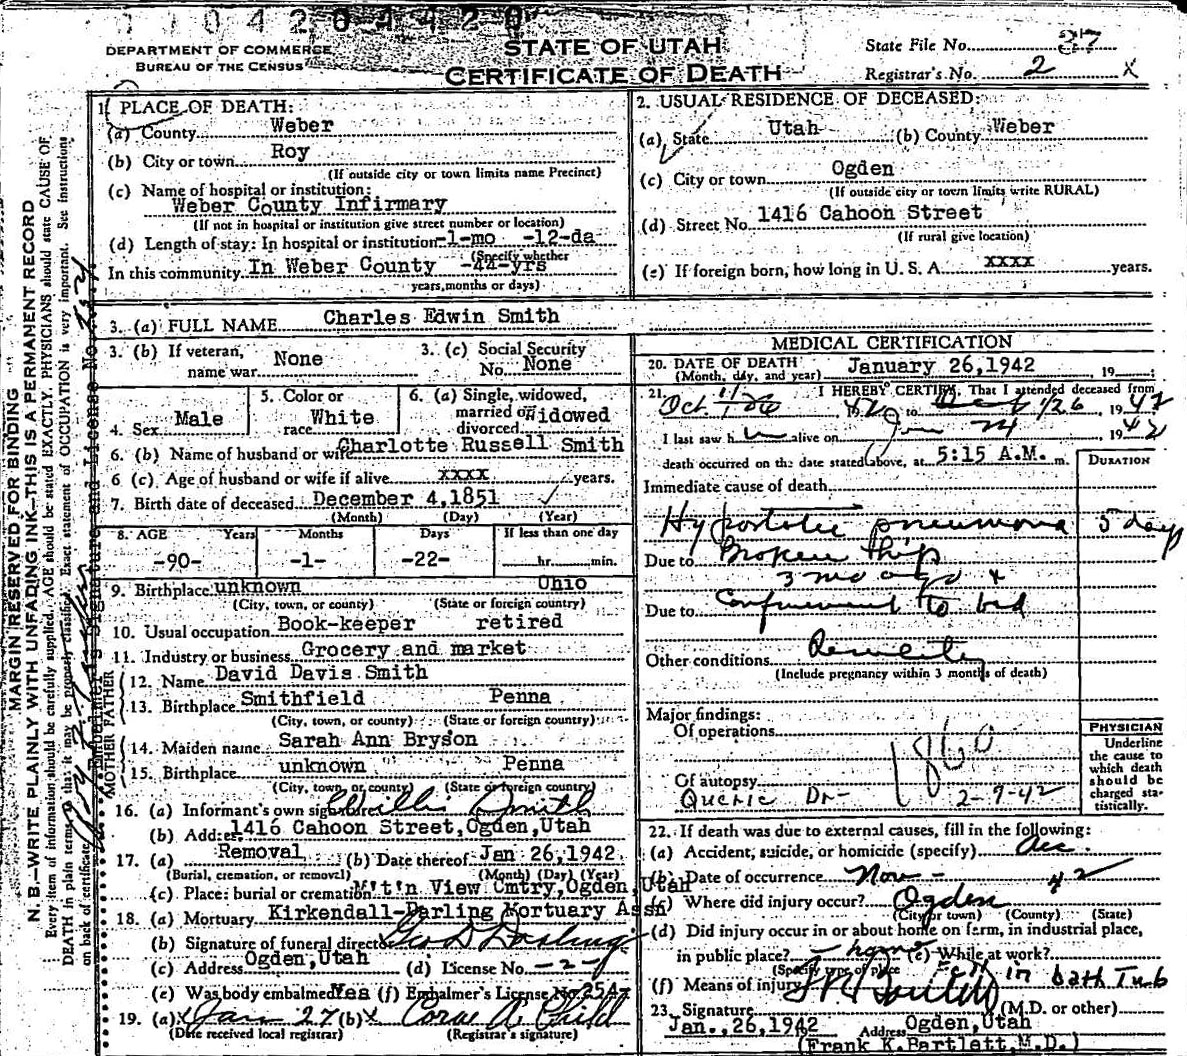 DEPARTMENT OF COMMERCE
BUREAU OF THE CENSUS
STATE OF UTAH
CERTIFICATE OF DEATH
State File No. 37
Registrar's No. 2 X
MARGIN RESERVED FOR BINDING
N. B.—WRITE PLAINLY WITH UNFADING INK—THIS IS A PERMANENT RECORD
Every item of information should be carefully supplied. AGE should be stated EXACTLY. PHYSICIANS should state CAUSE OF
DEATH in plain terms so that it may be properly classified. Exact statement of OCCUPATION is very important. See instructions
on back of certificate.
Embalmer's Signature and License No.
1. PLACE OF DEATH:
(a) County Weber
(b) City or town Roy
(If outside city or town limits name Precinct)
(c) Name of hospital or institution:
Weber County Infirmary
(If not in hospital or institution give street number or location)
(d) Length of stay: In hospital or institution -1-mo -12-da
(Specify whether
In this community In Weber County -44-yrs
years, months or days)
2. USUAL RESIDENCE OF DECEASED:
(a) State Utah (b) County Weber
(c) City or town Ogden
(If outside city or town limits write RURAL)
(d) Street No. 1416 Cahoon Street
(If rural give location)
(e) If foreign born, how long in U. S. A. xxxx years.
3. (a) FULL NAME Charles Edwin Smith
3. (b) If veteran, name war None
3. (c) Social Security No. None
4. Sex Male
5. Color or race White
6. (a) Single, widowed, married or divorced Widowed
6. (b) Name of husband or wife Charlotte Russell Smith
6 (c) Age of husband or wife if alive xxxx years.
7. Birth date of deceased December 4,1851
(Month) (Day) (Year)
8. AGE Years Months Days If less than one day
-90- -1- -22- hr. min.
9. Birthplace unknown Ohio
(City, town, or county) (State or foreign country)
10. Usual occupation Book-keeper retired
11. Industry or business Grocery and market
FATHER
12. Name David Davis Smith
13. Birthplace Smithfield Penna
(City, town, or county) (State or foreign country)
MOTHER
14. Maiden name Sarah Ann Bryson
15. Birthplace unknown Penna
(City, town, or county) (State or foreign country)
16. (a) Informant's own signature Willis Smith
(b) Address 1416 Cahoon Street,Ogden,Utah
17. (a) Removal (b) Date thereof Jan 26,1942
(Burial, cremation, or removal) (Month) (Day) (Year)
(c) Place: burial or cremation M't'n View Cmtry,Ogden,Utah
18. (a) Mortuary Kirkendall-Darling Mortuary Assn
(b) Signature of funeral director Geo D Darling
(c) Address Ogden,Utah (d) License No. -2-
(e) Was body embalmed Yes (f) Embalmer's License No. 254
19. (a) x Jan 27 (b) x Corae A. Child
(Date received local registrar) (Registrar's signature)
MEDICAL CERTIFICATION
20. DATE OF DEATH January 26,1942 , 19 ;
(Month, day, and year)
21. I HEREBY CERTIFY, That I attended deceased from
Oct to 1/26 , 1942
I last saw h alive on Jan 24 , 1942
death occurred on the date stated above, at 5:15 A.M. m.
DURATION
Immediate cause of death
Hypostatic pneumonia 5 days
Due to Broken Hip
3 mo ago +
Due to Confinement to bed
Other conditions
(Include pregnancy within 3 months of death)
Major findings:
Of operations
186
Of autopsy
Querie Dr- 2-9-42
PHYSICIAN
Underline
the cause to
which death
should be
charged sta-
tistically.
22. If death was due to external causes, fill in the following:
(a) Accident, suicide, or homicide (specify) Acc.
(b) Date of occurrence Nov - 42
(c) Where did injury occur? Ogden
(City or town) (County) (State)
(d) Did injury occur in or about home on farm, in industrial place,
in public place? - home (e) While at work?
(Specify type of place
(f) Means of injury Fell in bath Tub
23. Signature (M.D. or other)
Jan.,26,1942 Address Ogden,Utah
(Frank K.Bartlett,M.D.)